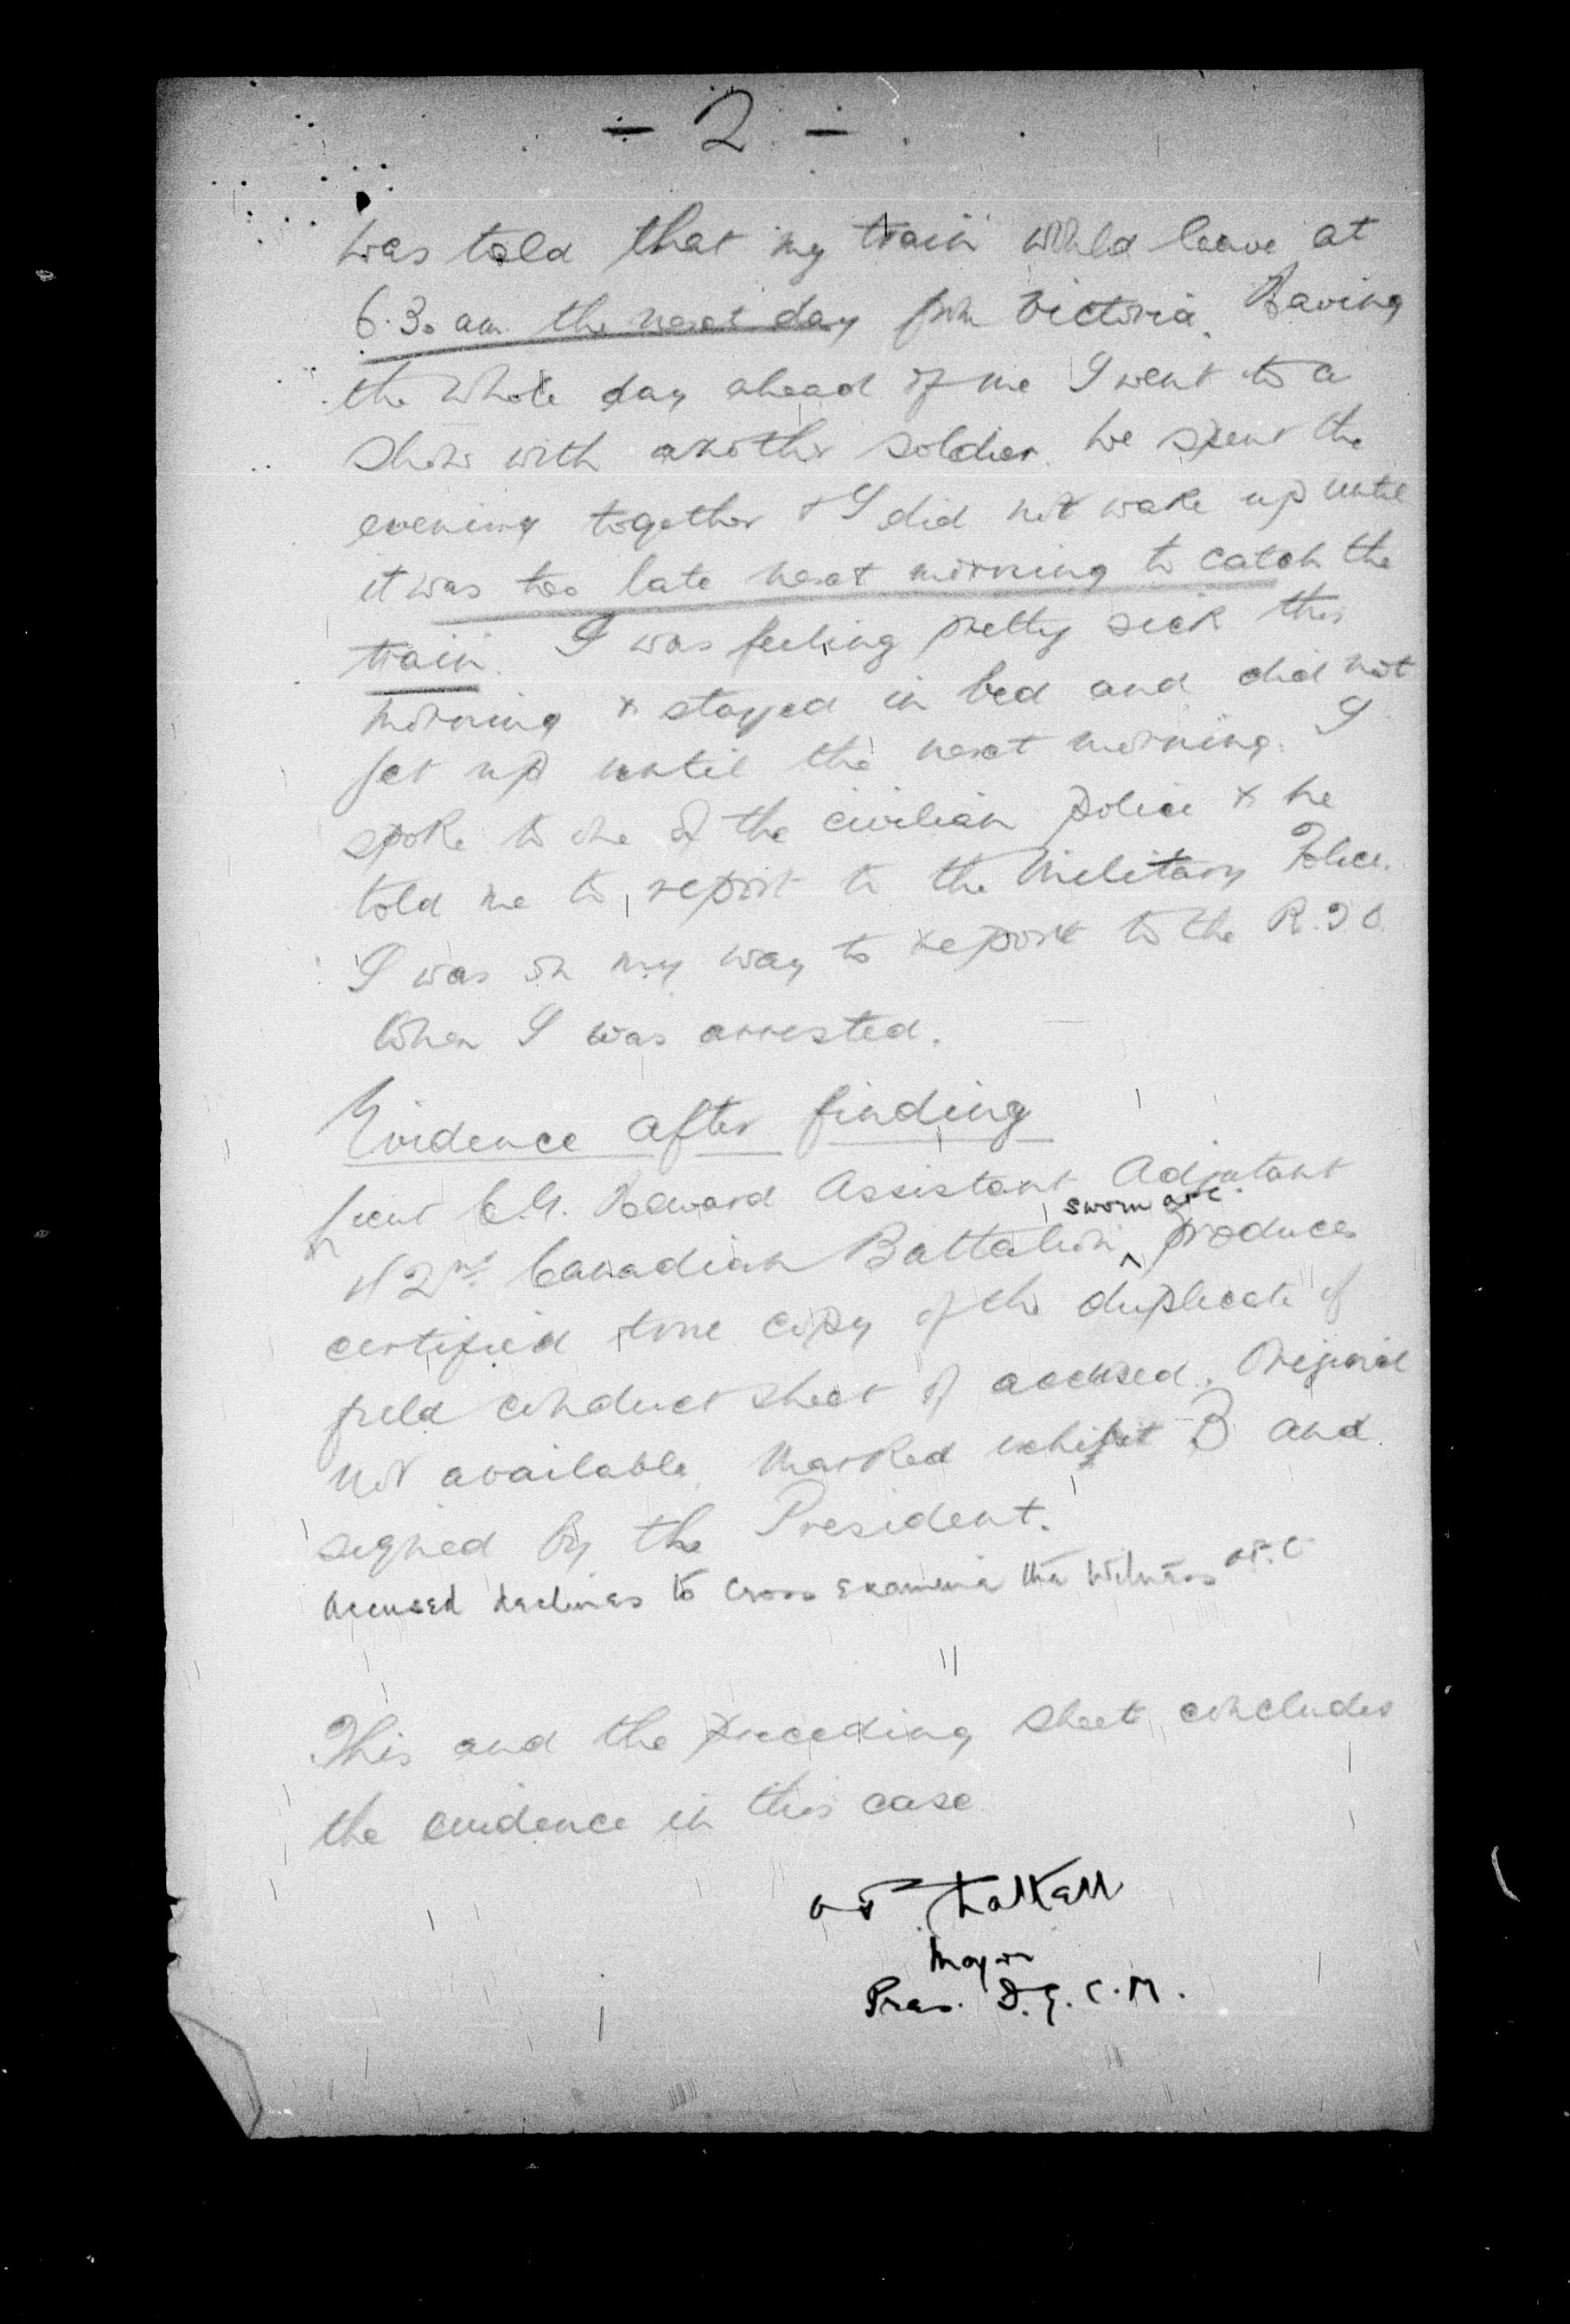 - 2 -
was told that my train would leave at
6.30 am the next day from Victoria. Having
the whole day ahead of me I went to a
show with another soldier. We spent the
evening together & I did not wake up until
it was too late next morning to catch the
train. I was feeling pretty sick this
morning & stayed in bed and did not
get up until the next morning. I
spoke to one of the civilian police & he
told me to report to the Military Police.
I was on my way to report to the R.T.O.
when I was arrested.
Evidence after finding
Lieut C.G. Assistant Adjutant
sworn
42nd Canadian Battalion ^ produces
certified true copy of the duplicate of
field conduct sheet of accused. Original
not available marked exhibit B and
signed by the President.
Accused declines to cross examine the witness
This and the preceding sheet concludes
the evidence in this case
Major
Pres. F.G.C.M.